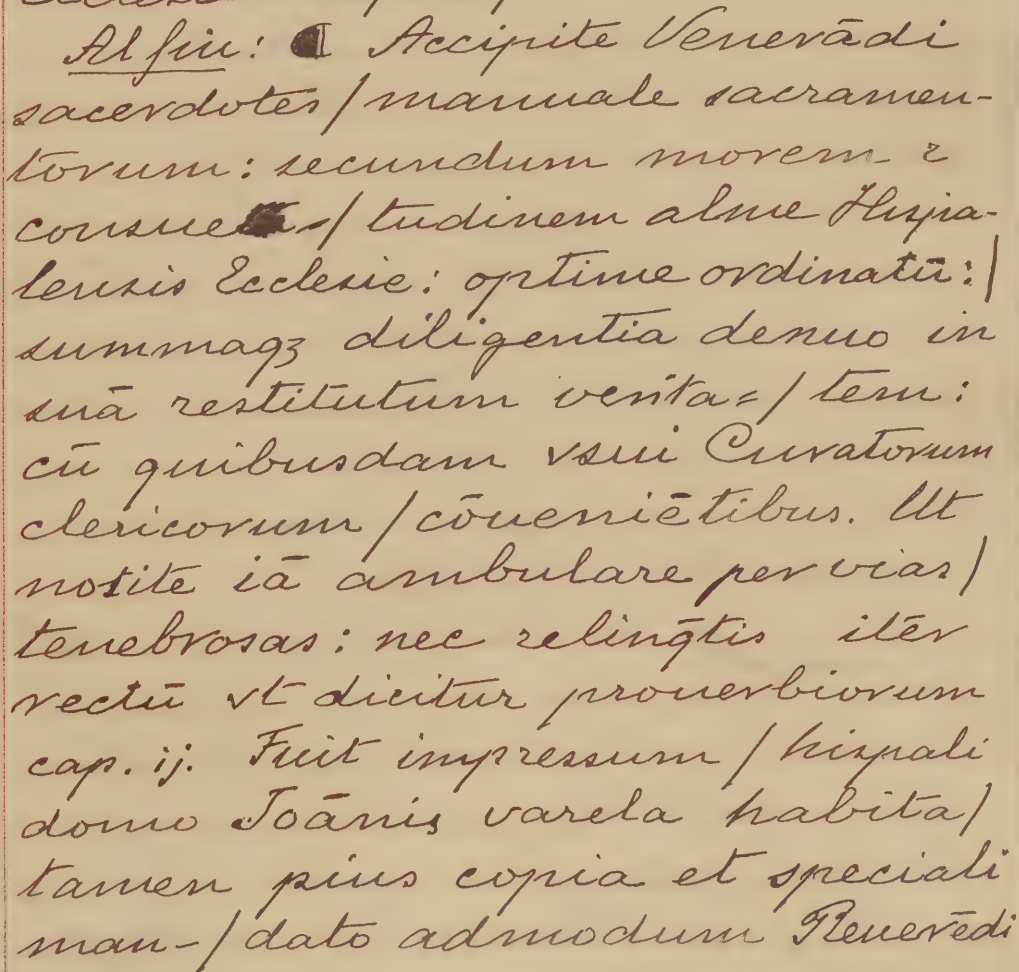 Al fin: ¶ Accipite Venerādi
sacerdotes / manuale sacramen-
torum: secundum morem ⁊
consue- / tudinem alme Hispa-
lensis Ecclesie: optime ordinatū: /
summaqȝ diligentia denuo in
suā restitutum verita= / tem:
cū quibusdam vsui Curatorum
clericorum / cōueniētibus. Ut
nolite iā ambulare per vias /
tenebrosas: nec relinq̄tis itēr
rectū vt dicitur prouerbiorum
cap. ij. Fuit impressum / hispali
domo Joānis varela habita /
tamen pius copia et speciali
man- / dato admodum Reuerēdi